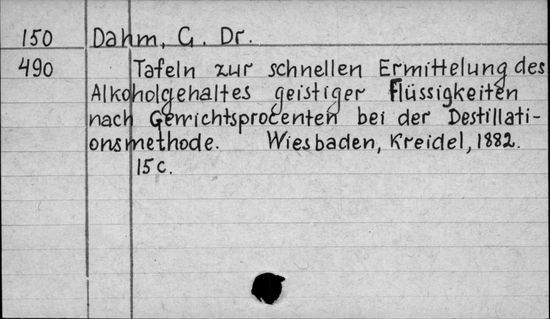 150 Dahm, G. Dr.
490 Tafeln zur schnellen Ermittelung des
Alkoholgehaltes geistiger Flüssigkeiten
nach Gewichtsprocenten bei der Destillati-
onsmethode. Wiesbaden, Kreidel, 1882.
15 c.